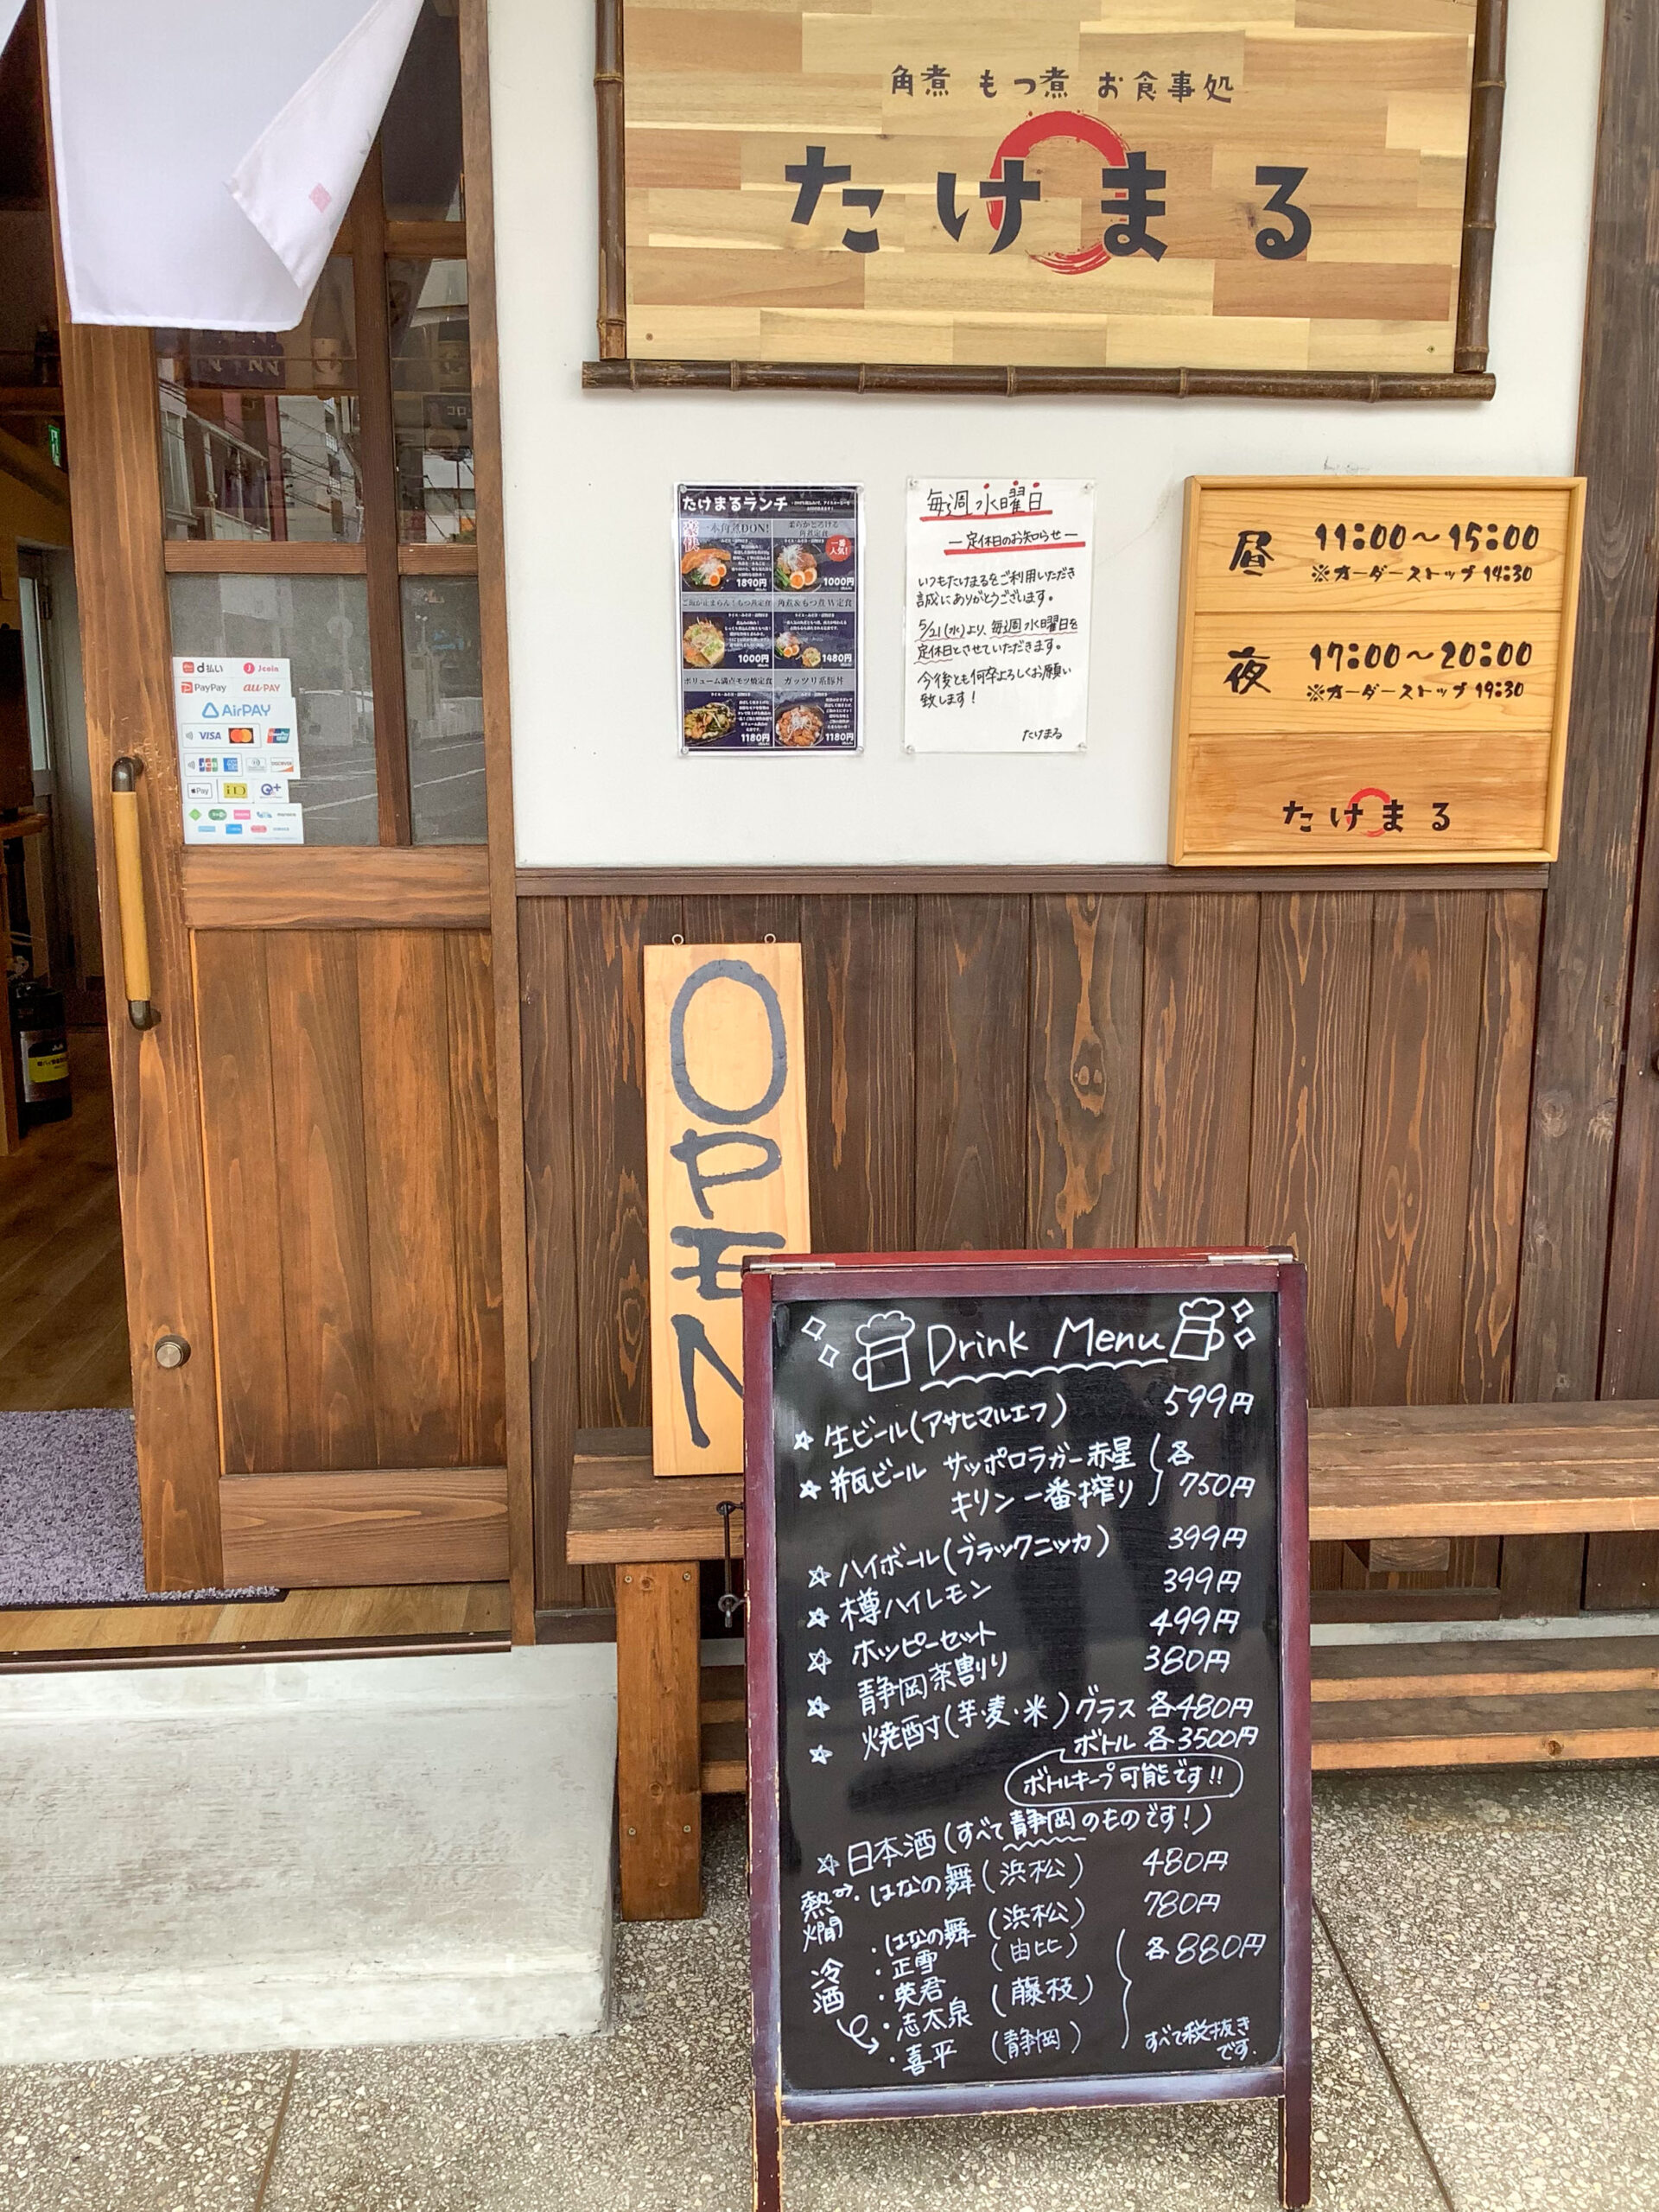 角煮 もつ煮 お食事処
たけまる
たけまるランチ
豪快
一本角煮DON!
1890円
柔らかとろける
角煮定食
一番
人気!
1000円
ご飯が止まらん!もつ煮定食
1000円
角煮&もつ煮W定食
1480円
ボリューム満点モツ焼定食
1180円
ガッツリ系豚丼
1180円
毎週水曜日
ー定休日のお知らせー
いつもたけまるをご利用いただき
誠にありがとうございます。
5/21(水)より、毎週水曜日を
定休日とさせていただきます。
今後とも何卒よろしくお願い
致します!
たけまる
昼
11:00~15:00
※オーダーストップ 14:30
夜
17:00~20:00
※オーダーストップ 19:30
たけまる
d払い
J-Coin
PayPay
au PAY
AirPAY
VISA
JCB
DISCOVER
Pay
iD
OPEN
Drink Menu
☆生ビール(アサヒマルエフ) 599円
☆瓶ビール サッポロラガー赤星 各
キリン一番搾り 750円
☆ハイボール(ブラックニッカ) 399円
☆樽ハイレモン 399円
☆ホッピーセット 499円
☆静岡茶割り 380円
☆焼酎(芋・麦・米)グラス 各480円
ボトル 各3500円
ボトルキープ可能です!!
☆日本酒(すべて静岡のものです!)
熱燗
・はなの舞(浜松) 480円
冷酒
・はなの舞(浜松) 780円
・正雪(由比) 各880円
・英君
・志太泉(藤枝)
・喜平(静岡)
すべて税抜き
です。